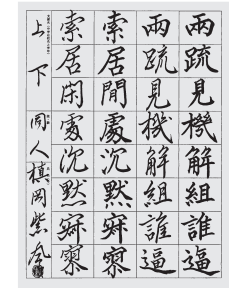 兩疏見機解組誰逼
兩疏見機解組誰逼
索居閒處沉默寂寥
索居閑處沉默寂寥
上下 同人 槙岡紫風